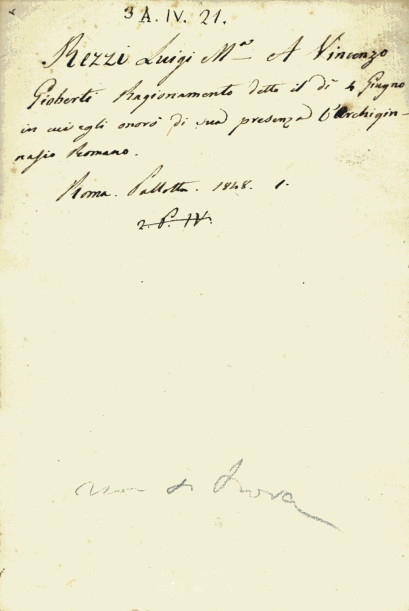 3 A. IV. 21.
Rezzi Luigi M.ᵃ A Vincenzo
Gioberti Ragionamento detto il dì 4 Giugno
in cui egli onorò di sua presenza l'Archigin-
nasio Romano.
Roma. Pallotta. 1848. 1.
2. P. IV.
non si trova